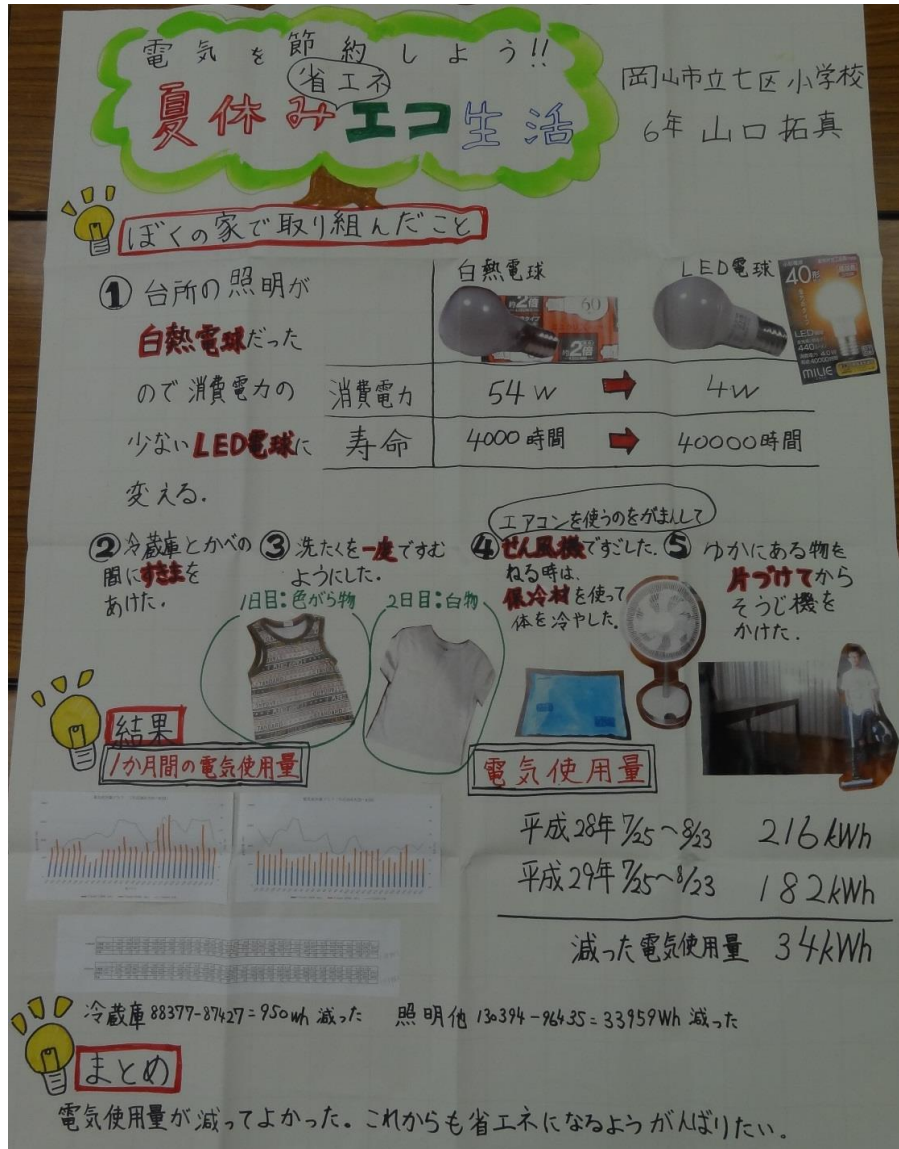 電気を節約しよう!!
省エネ
夏休みエコ生活
岡山市立七区小学校
6年 山口拓真
ぼくの家で取り組んだこと
①台所の照明が
白熱電球だった
ので消費電力の
少ないLED電球に
変える.
白熱電球
LED電球
約2倍
60
約2倍
40形
LED
MILIE
消費電力
54W
4W
寿命
4000時間
40000時間
②冷蔵庫とかべの
間にすきまを
あけた.
③洗たくを一度ですむ
ようにした.
1日目:色がら物
2日目:白物
エアコンを使うのをがまんして
④せん風機ですごした.
ねる時は、
保冷材を使って
体を冷やした.
⑤ゆかにある物を
片づけてから
そうじ機を
かけた.
結果
1か月間の電気使用量
電気使用量
平成28年 7/25~8/23 216kWh
平成29年 7/25~8/23 182kWh
減った電気使用量 34kWh
冷蔵庫 88377-87427=950Wh 減った
照明他 130394-96435=33959Wh 減った
まとめ
電気使用量が減ってよかった。これからも省エネになるようがんばりたい。